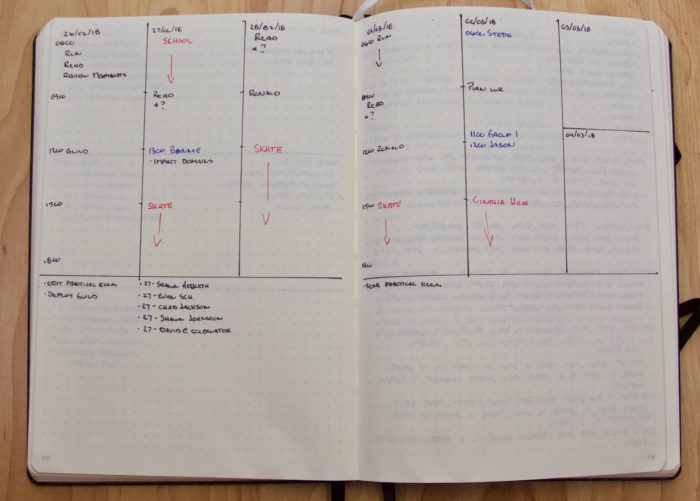 26/02/18
0600
RUN
READ
REVIEW MOMENTS
0900
1200 GUILD
1500
1800
27/02/18
SCHOOL
READ
+ ?
1300 BONNIE
· IMPACT DOMAINS
SKATE
28/02/18
READ
+ ?
RONALD
SKATE
· EDIT PRACTICAL ECOM
· DEPLOY GUILD
· 27 - SHAWN HESKETH
· 27 - EVAN SCH
· 27 - CHAD JACKSON
· 27 - SHAWN JOHNSTON
· 27 - DAVID C COLDWATER
01/03/18
0600 RUN
0900
READ
+ ?
1200 RONALD
1500 SKATE
1800
02/03/18
0600 STEPH
PLAN WK
1100 GROUP 1
1200 JASON
CYNTHIA HAIR
03/03/18
04/03/18
· SEND PRACTICAL ECOM